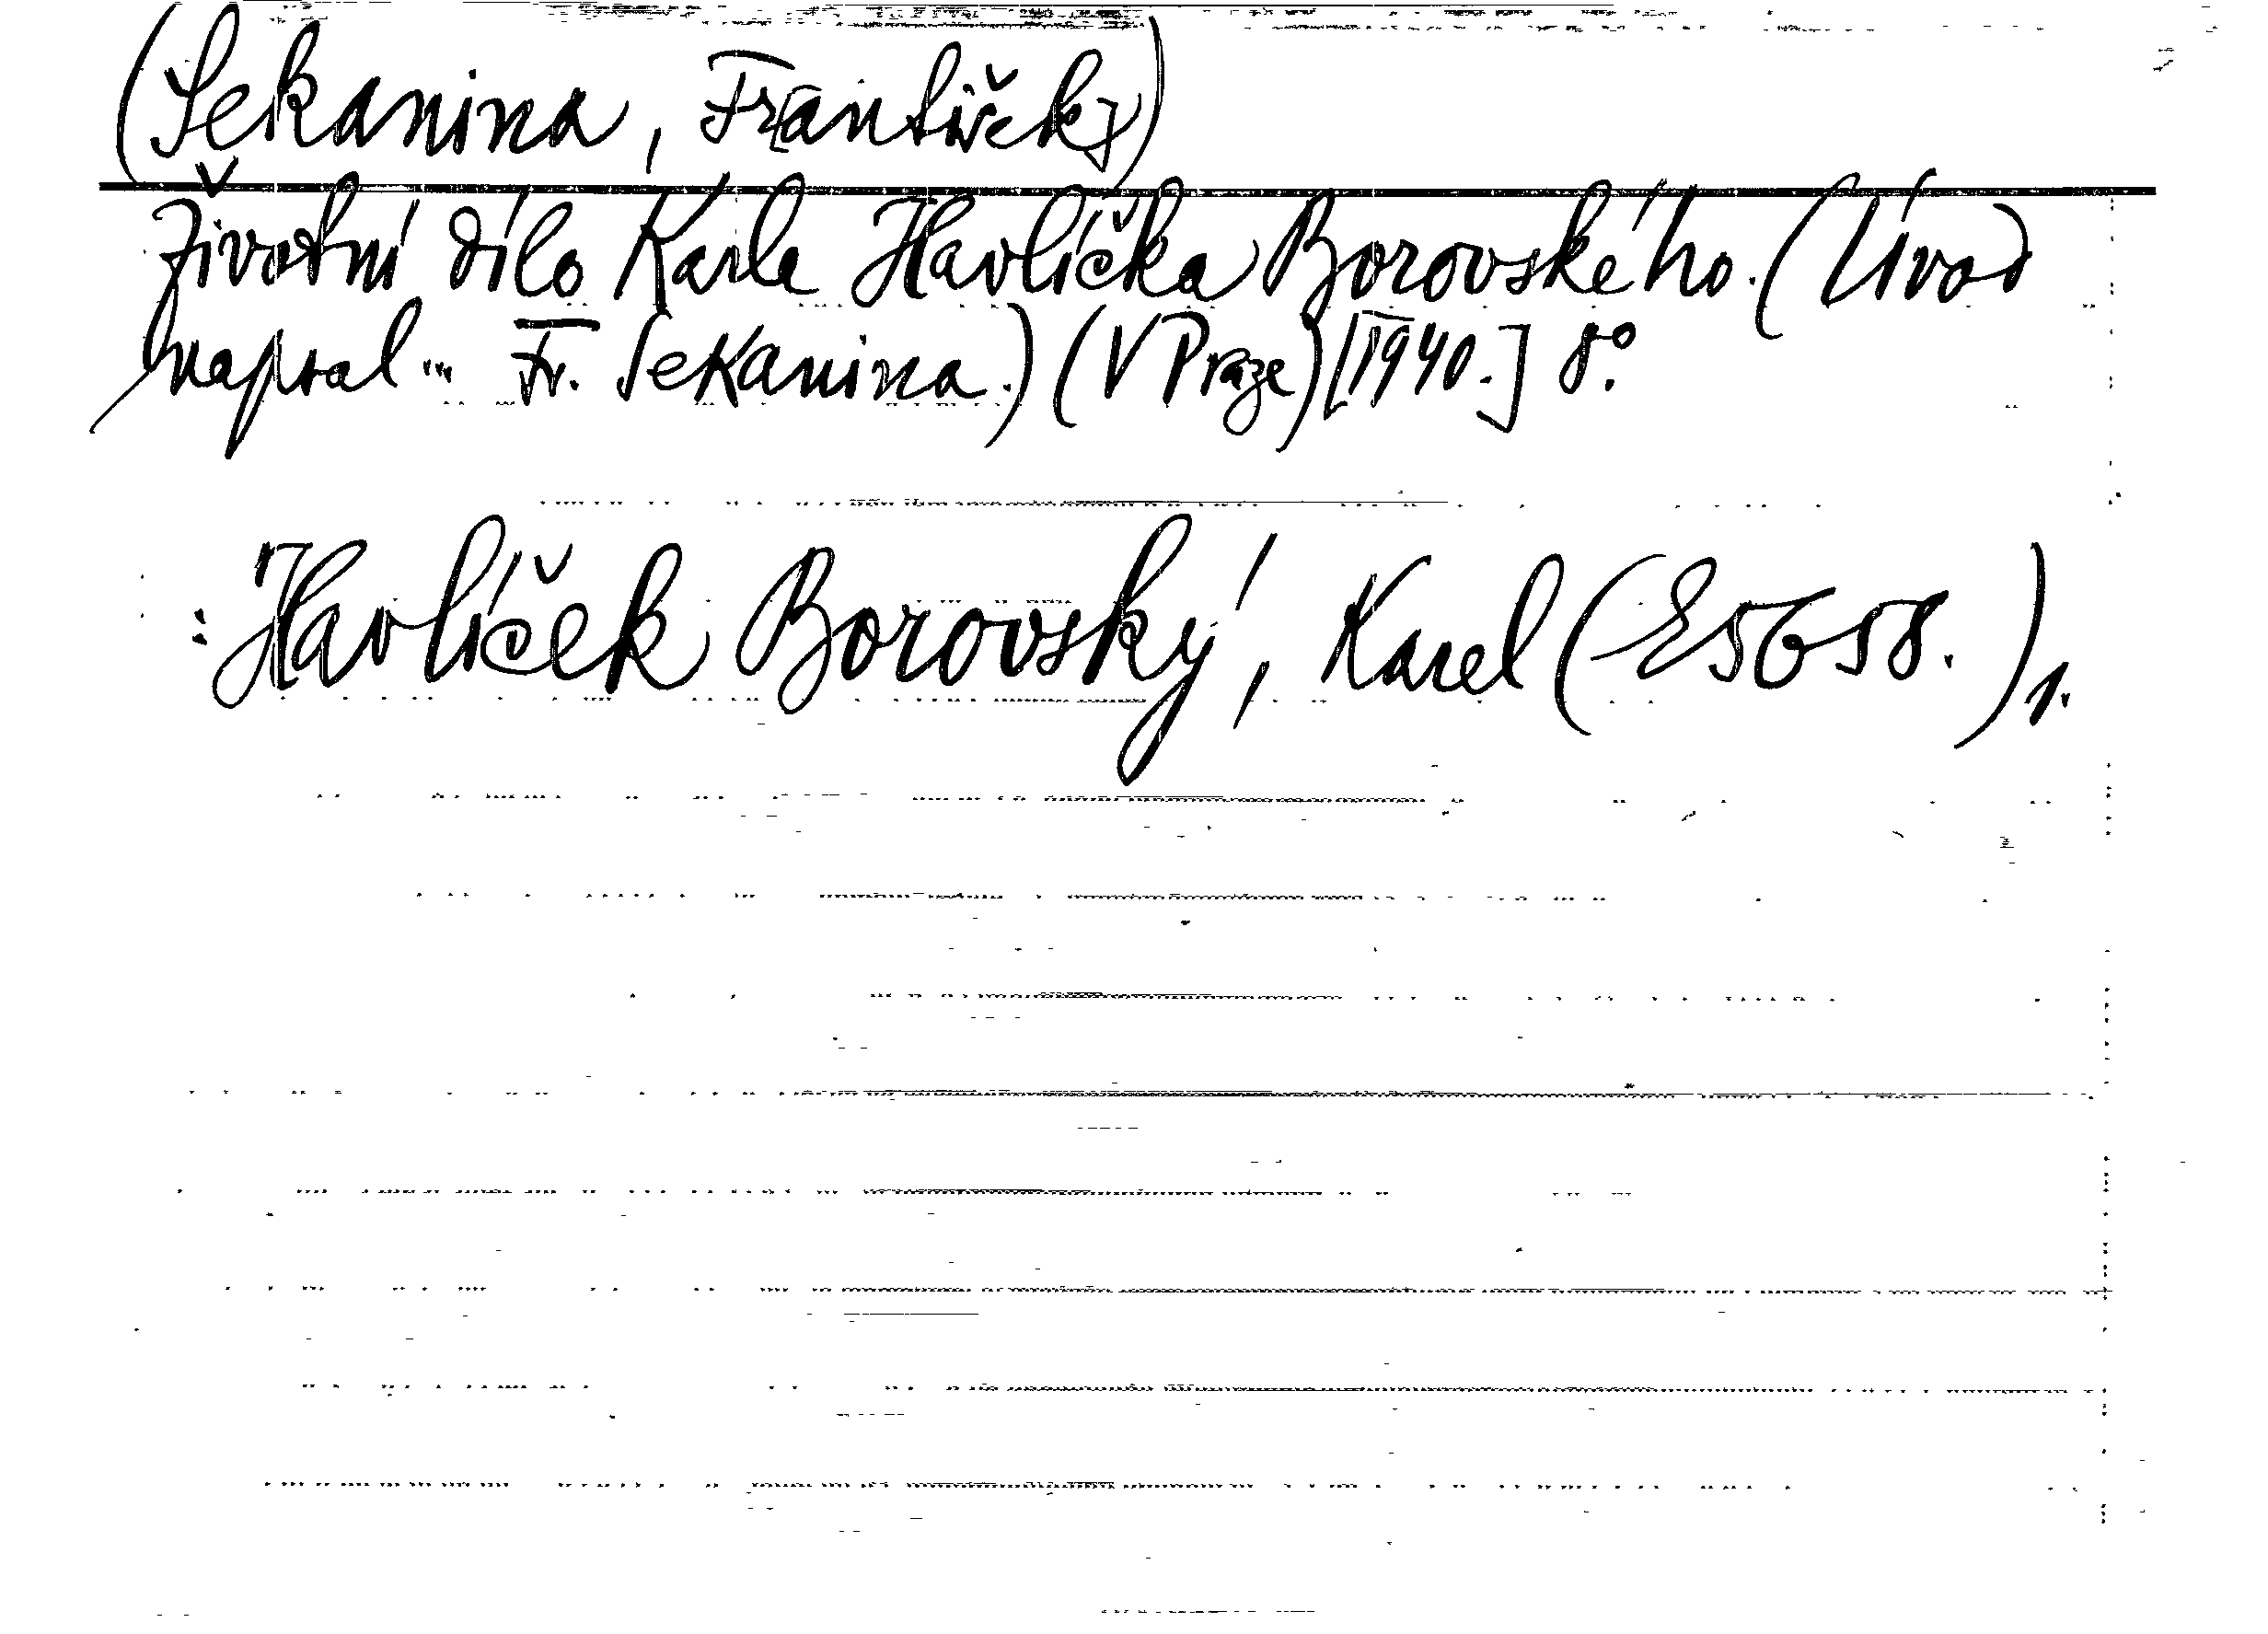 (Sekanina, Fr[antišek])
Životní dílo Karla Havlíčka Borovského. (Úvod
napsal ... Fr. Sekanina.) (V Praze) [1940.] 8°.
: Havlíček Borovský, Karel (E 5658.) 1.